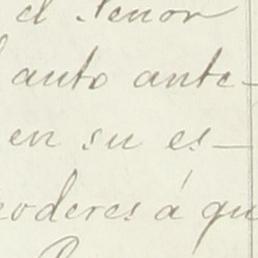 el Senor
auto ante-
en su es-
poderes á qu